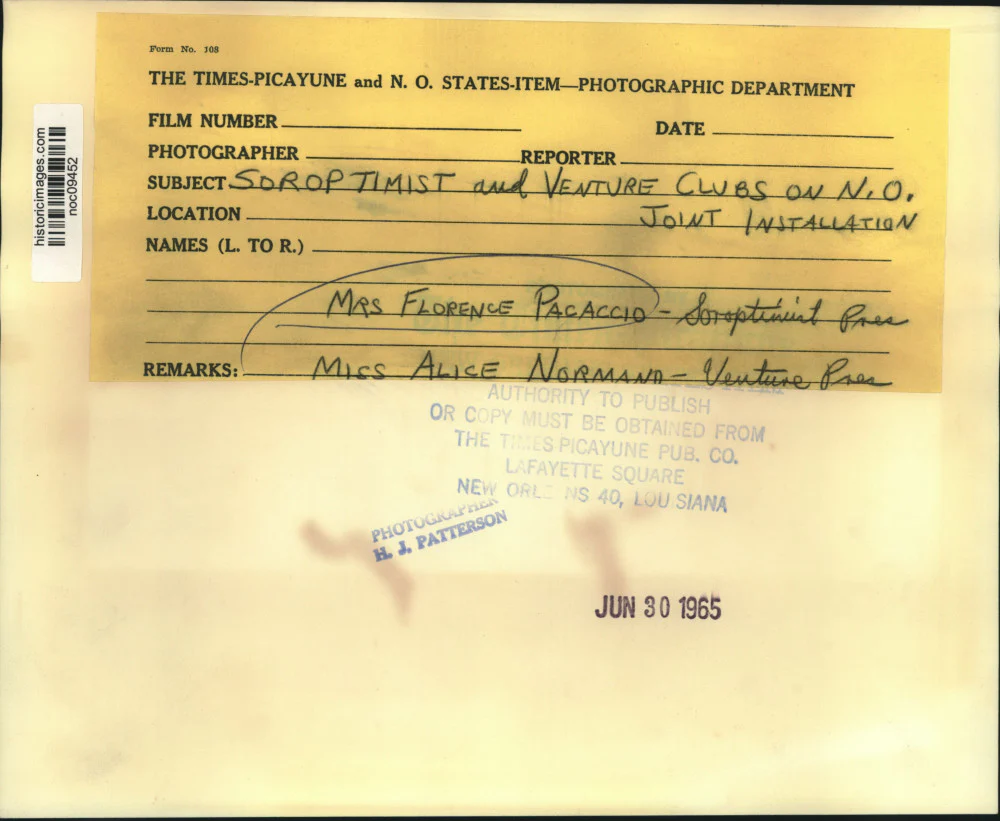 Form No. 108
THE TIMES-PICAYUNE and N. O. STATES-ITEM—PHOTOGRAPHIC DEPARTMENT
FILM NUMBER
DATE
PHOTOGRAPHER
REPORTER
SUBJECT SOROPTIMIST and VENTURE CLUBS ON N.O.
LOCATION JOINT INSTALLATION
NAMES (L. TO R.)
MRS FLORENCE PACACCIO - Soroptimist Pres
REMARKS: MISS ALICE NORMAND - Venture Pres
AUTHORITY TO PUBLISH
OR COPY MUST BE OBTAINED FROM
THE TIMES-PICAYUNE PUB. CO.
LAFAYETTE SQUARE
NEW ORLEANS 40, LOUISIANA
PHOTOGRAPHER
H. J. PATTERSON
JUN 30 1965
historicimages.com
noc09452